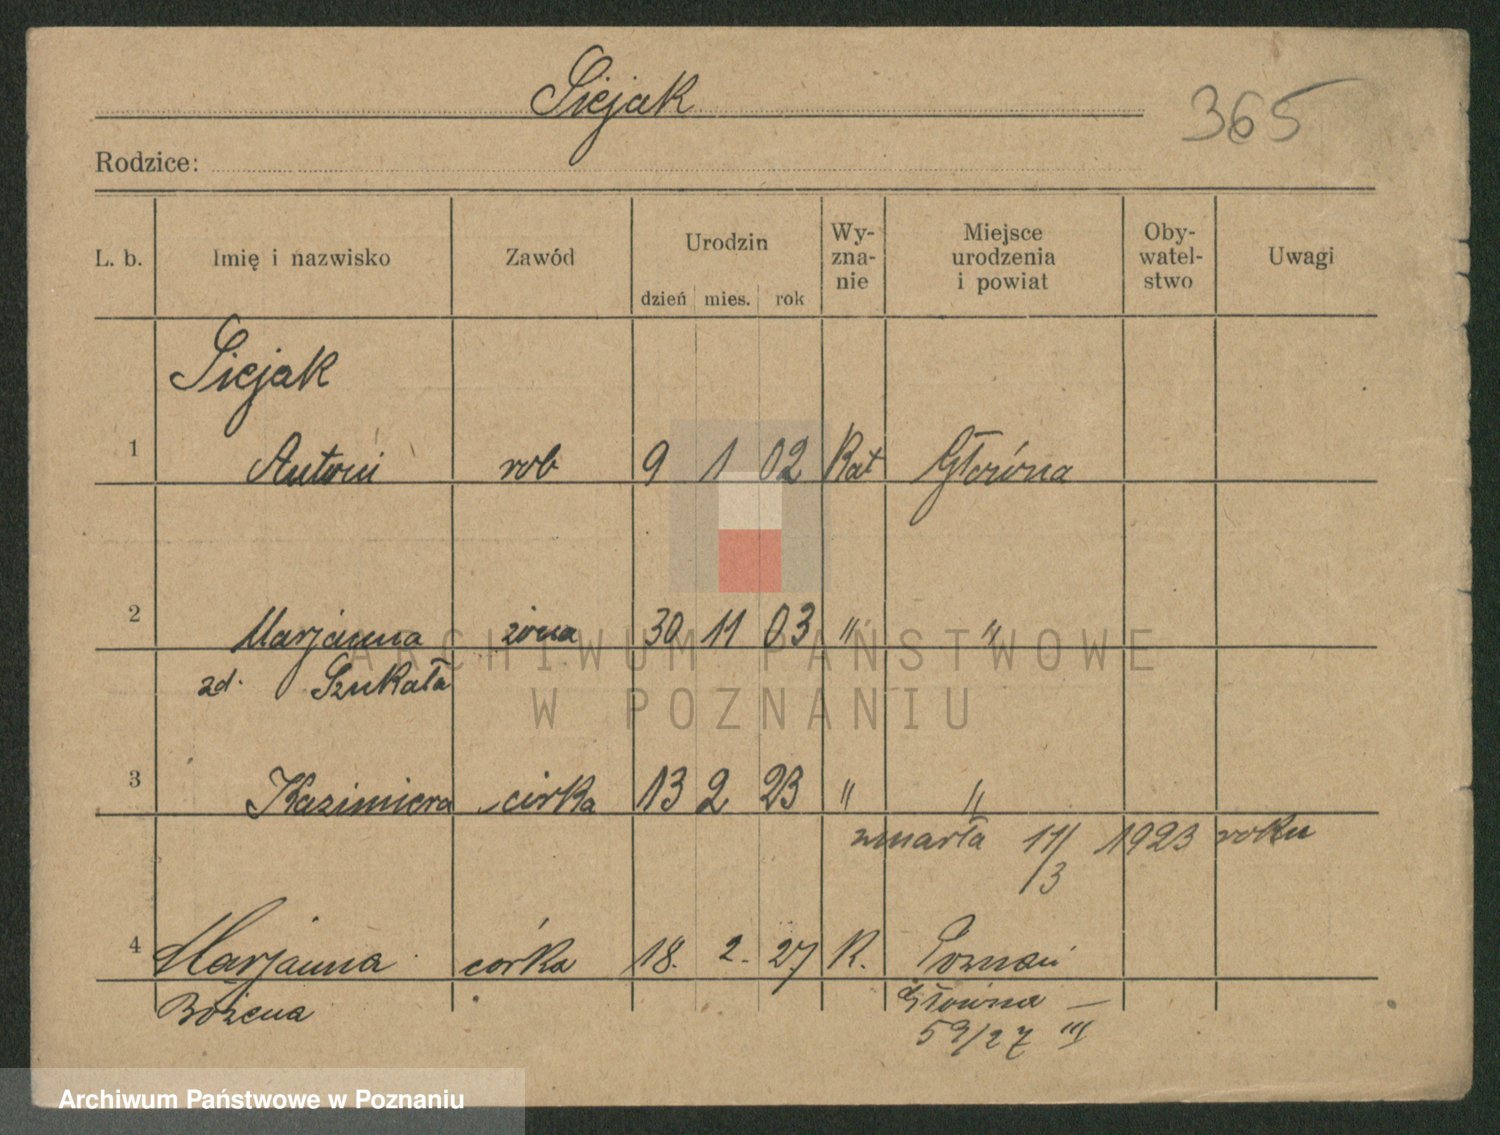 Siejak
365
Rodzice:
L. b. Imię i nazwisko Zawód Urodzin dzień mies. rok Wy-zna-nie Miejsce urodzenia i powiat Oby-watel-stwo Uwagi
Siejak
1 Antoni rob 9 1 02 Kat Główna
2 Marjanna żona 30 11 03 " "
zd. Szukała
3 Kazimiera córka 13 2 23 " "
zmarła 11/3 1923 roku
4 Marjanna córka 18. 2. 27 K. Poznań
Bożena Główna —
59/27 III
ARCHIWUM PAŃSTWOWE
W POZNANIU
Archiwum Państwowe w Poznaniu